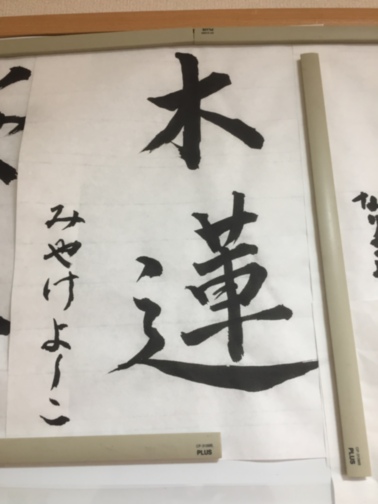 木蓮
みやけよーこ
PLUS
PLUS